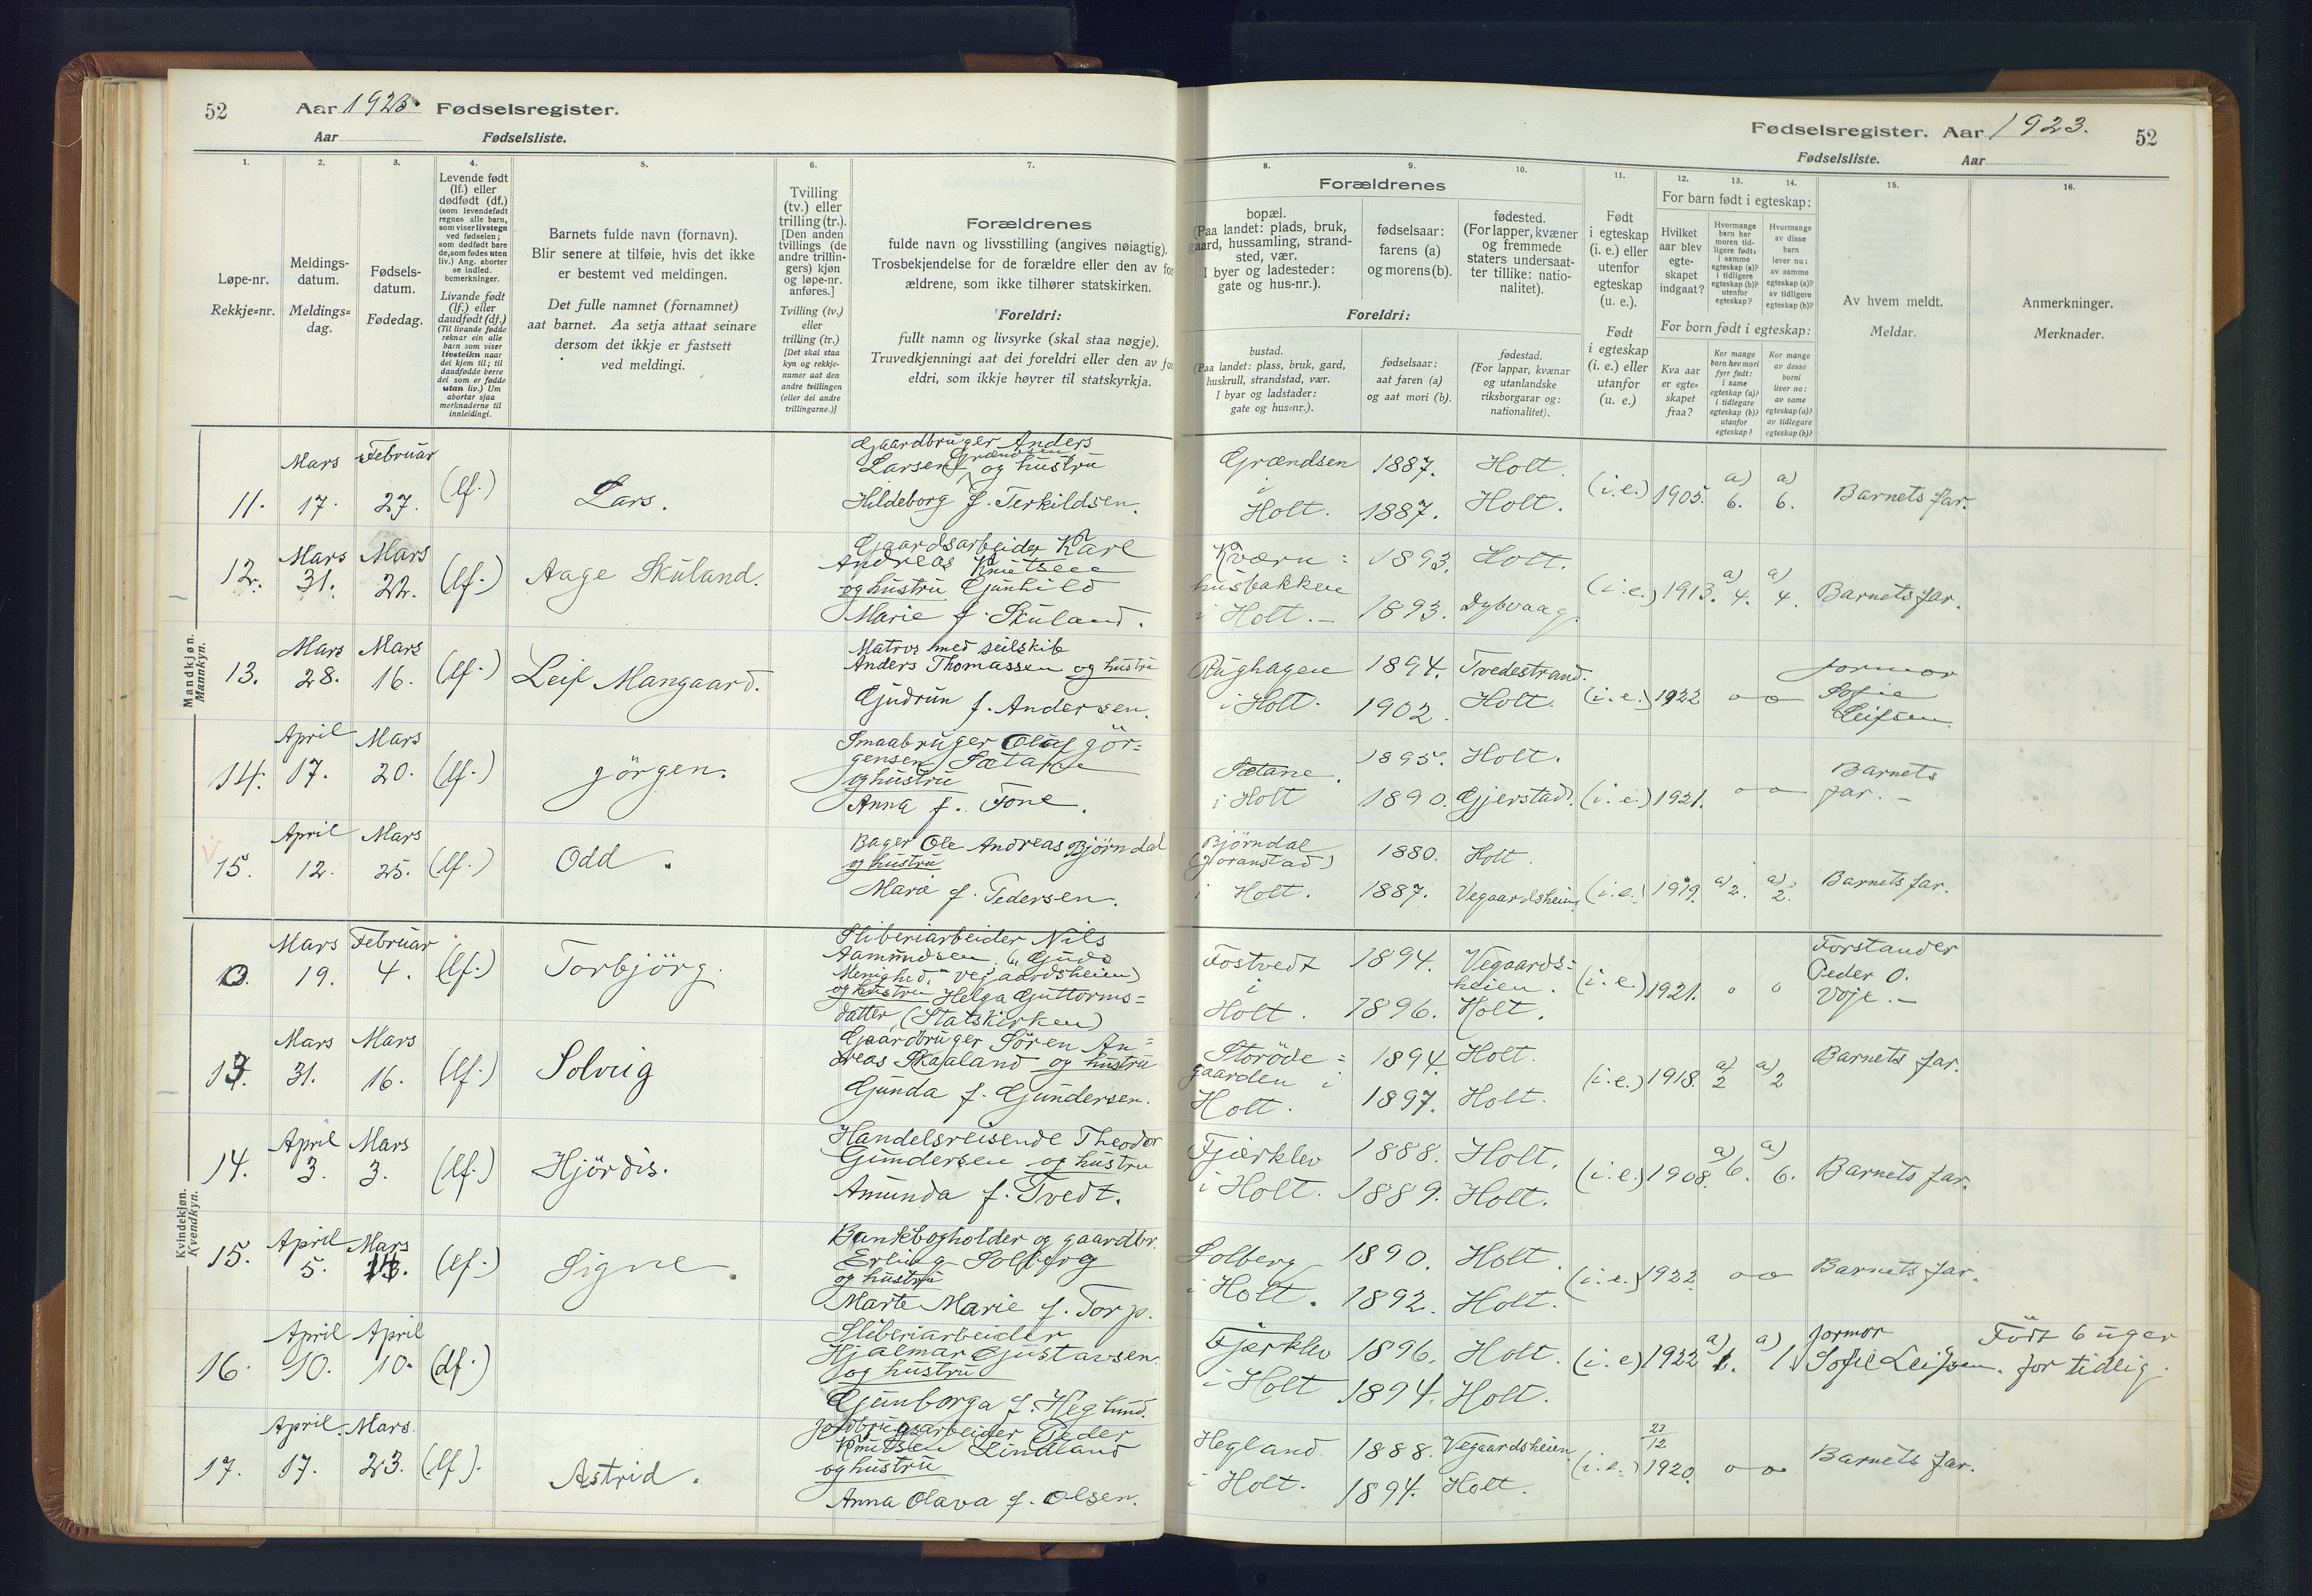 52 Aar 1923. Fødselsregister.
Aar Fødselsliste.
Fødselsregister. Aar 1923. 52
Fødselsliste. Aar
1. 2. 3. 4. 5. 6. 7. 8. 9. 10. 11. 12. 13. 14. 15. 16.
Løpe-nr.
Rekkje=nr.
Meldings-
datum.
Meldings=
dag.
Fødsels-
datum.
Fødedag.
Levende født
(lf.) eller
dødfødt (df.)
(som levendefødt
regnes alle barn,
som viser livstegn
ved fødselen;
som dødfødt bare
de, som fødes uten
liv.) Ang. aborter
se indled.
bemerkninger.
Livande født
(lf.) eller
daudfødt (df.)
(Til livande fødde
reknar ein alle
barn som viser
livsteikn naar
dei kjem til; til
daudfødde berre
dei som er fødde
utan liv.) Um
abortar sjaa
merknaderne til
innleidingi.
Barnets fulde navn (fornavn).
Blir senere at tilføie, hvis det ikke
er bestemt ved meldingen.
Det fulle namnet (fornamnet)
aat barnet. Aa setja attaat seinare
dersom det ikkje er fastsett
ved meldingi.
Tvilling
(tv.) eller
trilling (tr.).
[Den anden
tvillings (de
andre trillin-
gers) kjøn
og løpe-nr.
anføres.]
Tvilling (tv.)
eller
trilling (tr.)
[Det skal staa
kyn og rekkje-
numer aat den
andre tvillingen
(eller dei andre
trillingarne.)]
Forældrenes
fulde navn og livsstilling (angives nøiagtig).
Trosbekjendelse for de forældre eller den av for-
ældrene, som ikke tilhører statskirken.
Foreldri:
fullt namn og livsyrke (skal staa nøgje).
Truvedkjenningi aat dei foreldri eller den av for-
eldri, som ikkje høyrer til statskyrkja.
Forældrenes
bopæl.
(Paa landet: plads, bruk,
gaard, hussamling, strand-
sted, vær.
I byer og ladesteder:
gate og hus-nr.).
fødselsaar:
farens (a)
og morens (b).
fødested.
(For lapper, kvæner
og fremmede
staters undersaat-
ter tillike: natio-
nalitet).
Foreldri:
bustad.
(Paa landet: plass, bruk, gard,
huskrull, strandstad, vær.
I byar og ladstader:
gate og hus=nr.).
fødselsaar:
aat faren (a)
og aat mori (b).
fødestad.
(For lappar, kvænar
og utanlandske
riksborgarar og:
nationalitet).
Født
i egteskap
(i. e.) eller
utenfor
egteskap
(u. e.).
Født
i egteskap
(i. e.) eller
utanfor
(u. e.)
For barn født i egteskap:
Hvilket
aar blev
egte-
skapet
indgaat?
Hvormange
barn har
moren tid-
ligere født,
i samme
egteskap (a)?
i tidligere
egteskap (b)?
utenfor
egteskap?
Hvormange
av disse
barn
lever nu:
av samme
egteskap (a)?
av tidligere
egteskap (b)?
For born født i egteskap:
Kva aar
er egte=
skapet
fraa?
Kor mange
born hev mori
fyrr født:
i same
egteskap (a)?
i tidlegare
egteskap (b)?
utanfor
egteskap?
Kor mange
av desse
borni
liver no:
av same
egteskap (a)?
av tidlegare
egteskap (b)?
Av hvem meldt.
Meldar.
Anmerkninger.
Merknader.
Mandkjøn.
Mannkyn.
11. Mars 17. Februar 27. (lf.) Lars.
Gaardbruger Anders
Larsen Grændsen og hustru
Hildeborg f. Terkildsen.
Grændsen i Holt. 1887. 1887. Holt. Holt. (i.e.) 1905. a) 6. a) 6. Barnets far.
12. Mars 31. Mars 22. (lf.) Aage Skuland.
Gaardsarbeider Karl
Andreas Knutsen
og hustru Gunhild
Marie f. Skuland.
Kværn=
husbakken
i Holt. 1893. 1893. Holt. Dybvaag. (i.e.) 1913. a) 4. a) 4. Barnets far.
13. Mars 28. Mars 16. (lf.) Leif Mangaard.
Matros med seilskib
Anders Thomassen og hustru
Gudrun f. Andersen.
Rughagen
i Holt. 1894. 1902. Tvedestrand. Holt. (i.e.) 1922 o o Jormor
Sofie
Leifsen
14. April 17. Mars 20. (lf.) Jörgen.
Smaabruger Oluf Jör=
gensen Sætane
og hustru
Anna f. Tone.
Sætane.
i Holt 1895. 1890. Holt. Gjerstad. (i.e.) 1921. o o Barnets
far.
15. April 12. Mars 25. (lf.) Odd.
Bager Ole Andreas Bjørndal
og hustru
Marie f. Pedersen.
Bjørndal
(Goranstad)
i Holt. 1880. 1887. Holt. Vegaardsheien. (i.e.) 1919. a) 2. a) 2. Barnets far.
Kvindekjøn.
Kvendkyn.
Mars 19. Februar 4. (lf.) Torbjörg.
Sliberiarbeider Nils
Aamundsen. (Guds
Menighed, Vegaardsheien)
og hustru Helga Guttorms=
datter (Statskirken)
Fostvedt
i
Holt. 1894. 1896. Vegaards=
heien. Holt. (i.e.) 1921. o o Forstander
Peder O.
Voje.
13. Mars 31. Mars 16. (lf.) Solveig
Gaardbruger Sören An=
dreas Skaaland og hustru
Gunda f. Gundersen.
Storöde=
gaarden i
Holt. 1894. 1897. Holt. Holt. (i.e.) 1918. a) 2 a) 2 Barnets far.
14. April 3. Mars 3. (lf.) Hjördis.
Handelsreisende Theodor
Gundersen og hustru
Amunda f. Tvedt.
Fjærklev
i Holt. 1888. 1889. Holt. Holt. (i.e.) 1908. a) 6. a) 6. Barnets far.
15. April 5. Mars (lf.) Signe.
Bankbogholder og gaardbr.
Erling Solberg
og hustru
Marte Marie f. Torp.
Solberg
i Holt. 1890. 1892. Holt. Holt. (i.e.) 1922 o o Barnets far.
16. April 10. April 10. (df.)
Sliberiarbeider
Hjalmar Gustavsen
og hustru
Gunborga f. Heglund.
Fjærklev
i Holt 1896. 1894. Holt. Holt. (i.e) 1922 a) 1. a) 1. Jormor
Sofie Leifsen. Födt 6 uger
for tidlig.
17. April 17. Mars 23. (lf). Astrid.
Jordbrugsarbeider Peder
Knutsen Lindland
og hustru
Anna Olava f. Olsen.
Hegland
i Holt. 1888. 1894. Vegaardsheien Holt. (i.e.) 23/12 1920. o o Barnets far.